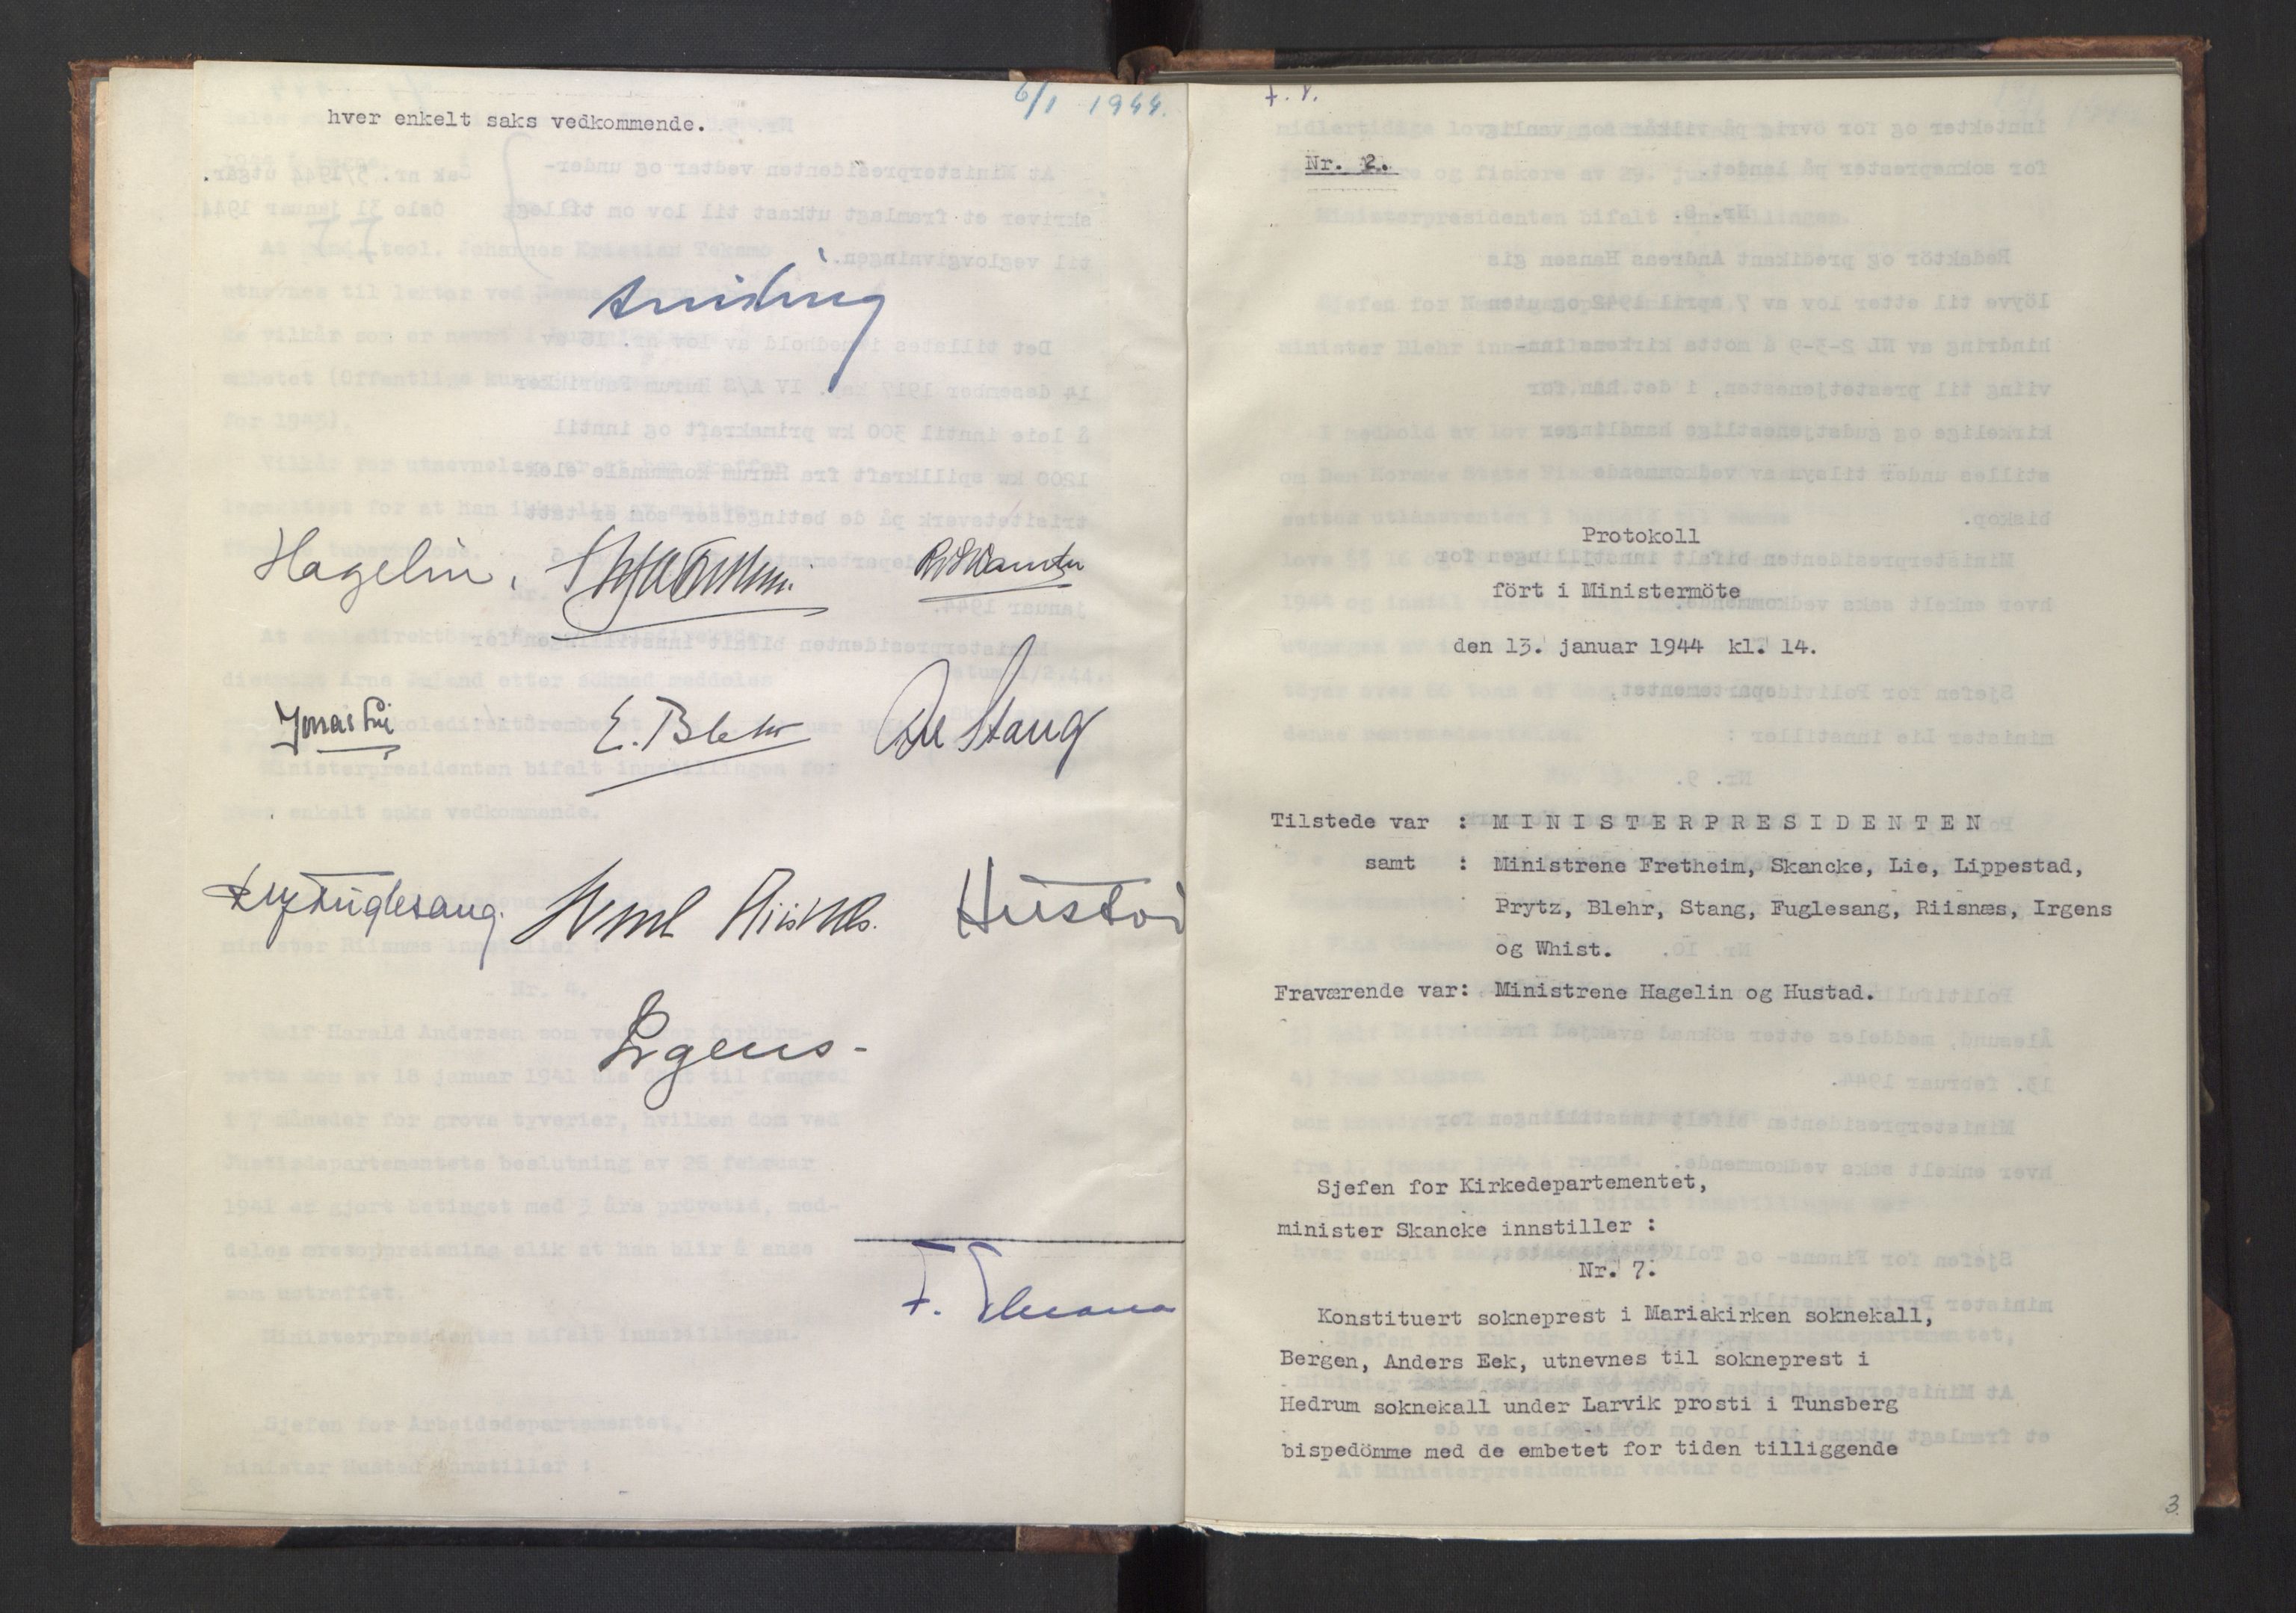 6/1 1944.
hver enkelt saks vedkommende.
Quisling
Hagelin.
R. Skancke
Jonas Lie
E. Blehr
Stang
Fuglesang.
Sverre Riisnæs.
Hustad
Irgens-
Nr. 2.
Protokoll
fört i Ministermöte
den 13. januar 1944 kl. 14.
Tilstede var : MINISTERPRESIDENTEN
samt : Ministrene Fretheim, Skancke, Lie, Lippestad,
Prytz, Blehr, Stang, Fuglesang, Riisnæs, Irgens
og Whist.
Fraværende var: Ministrene Hagelin og Hustad.
Sjefen for Kirkedepartementet,
minister Skancke innstiller :
Nr. 7.
Konstituert sokneprest i Mariakirken soknekall,
Bergen, Anders Eek, utnevnes til sokneprest i
Hedrum soknekall under Larvik prosti i Tunsberg
bispedömme med de embetet for tiden tilliggende
3.